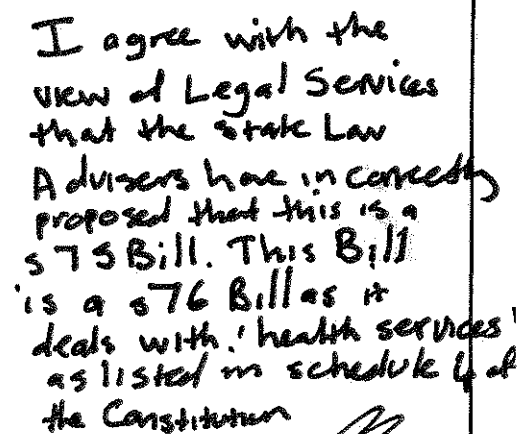 I agree with the
view of Legal Services
that the state Law
Advisers have incorrectly
proposed that this is a
s75 Bill. This Bill
is a s76 Bill as it
deals with 'health services'
as listed in schedule 4 of
the Constitution